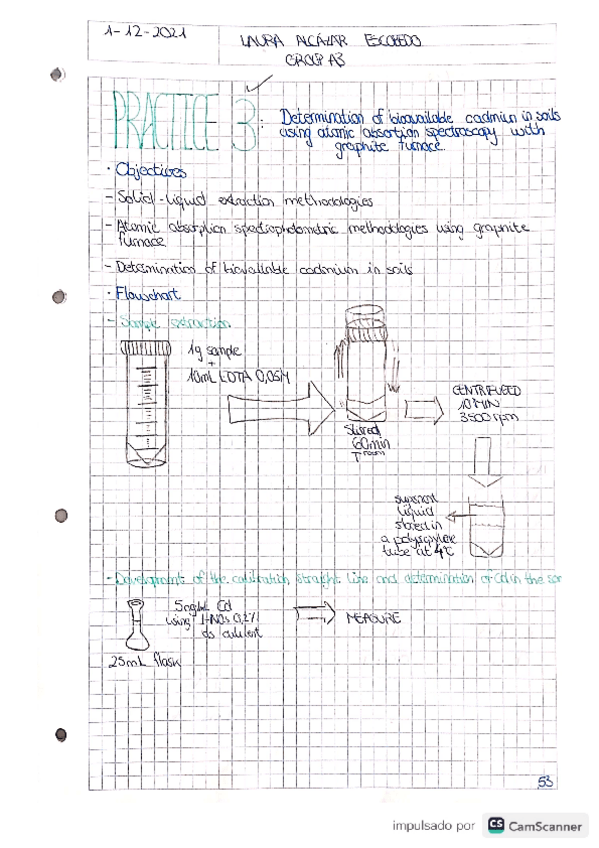 1-12-2021
LAURA ALCÁZAR ESCOBEDO
GROUP A3
PRACTICE 3: Determination of bioavailable cadmium in soils
using atomic absortion spectroscopy with
graphite furnace.
· Objectives
- Solid-liquid extraction methodologies
- Atomic absorption spectrophotometric methodologies using graphite
furnace
- Determination of bioavailable cadmium in soils
· Flowchart
- Sample extraction
1g sample
+
10mL EDTA 0,05M
Stirred
60min
T room
CENTRIFUGED
10 MIN
3500 rpm
liquid
stored in
a polypropylene
tube at 4ºC
- Developments of the calibration straight line and determination of Cd in the
5ng/L Cd
using HNO3 0,2%
as
MEASURE
25mL flask
53
impulsado por CS CamScanner